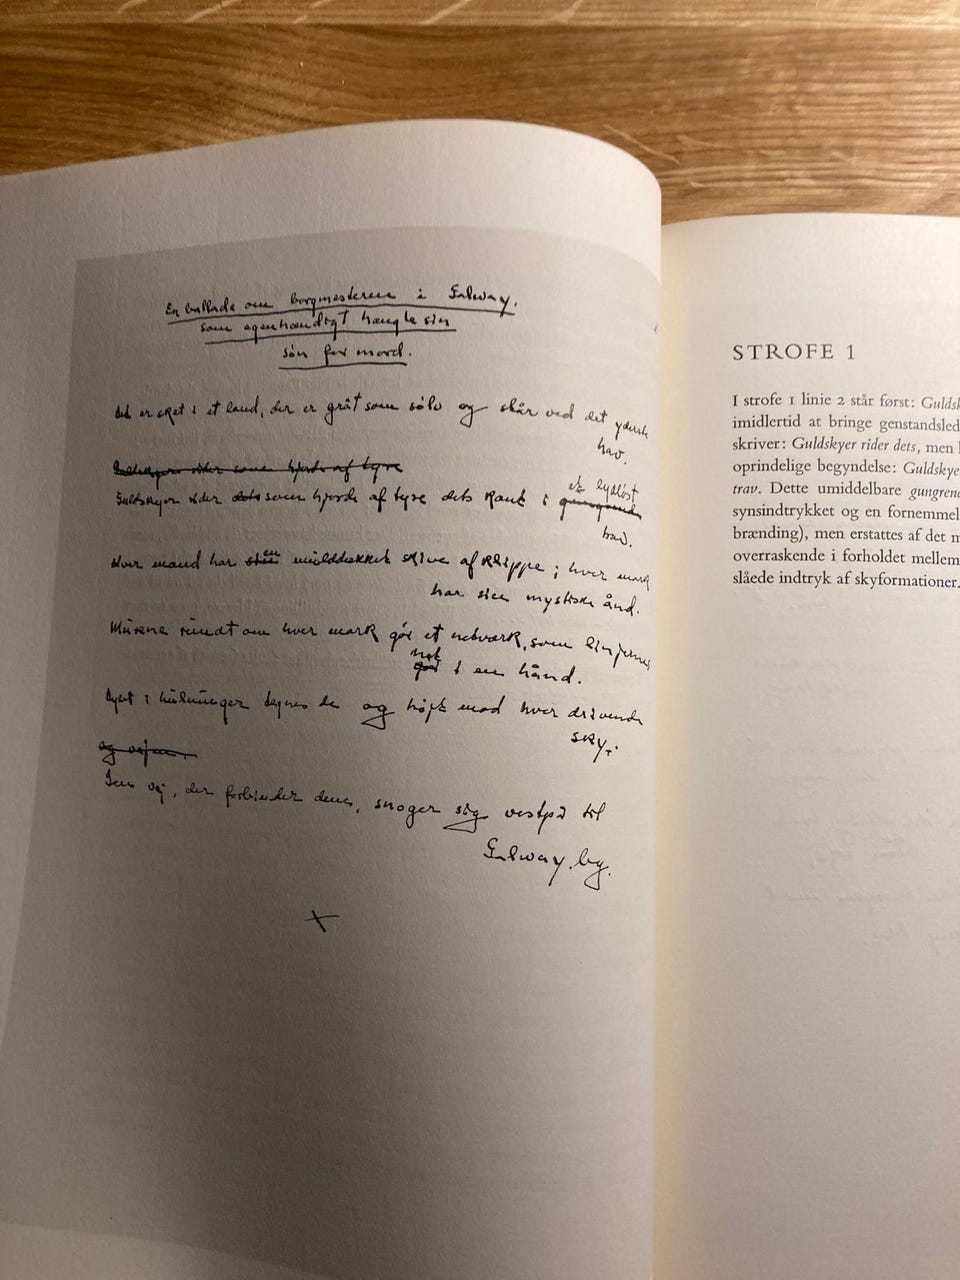 En ballade om borgmesteren i Galway,
som egenhændigt hængte sin
søn for mord.
Det er sket i et land, der er gråt som sølv og står ved det yderste
hav.
Guldskyer rider som hjorde af tyre
et lydløst
Guldskyer rider dets som hjorde af tyre dets kant i gungrende
trav.
Hver mand har sin en mulddækket skive af klippe; hver mark
har sin mystiske ånd.
Murene rundt om hver mark gør et netværk, som linjernes
net
i en hånd.
Dybt i hulninger tegnes de og højt mod hver drivende
sky.
og vejen
Den vej, der forbinder dem, snoger sig vestpå til
Galway by.
STROFE 1
I strofe 1 linie 2 står først: Guldsk
imidlertid at bringe genstandsled
skriver: Guldskyer rider dets, men
oprindelige begyndelse: Guldskye
trav. Dette umiddelbare gungrend
synsindtrykket og en fornemmel
brænding), men erstattes af det m
overraskende i forholdet mellem
slåede indtryk af skyformationer.